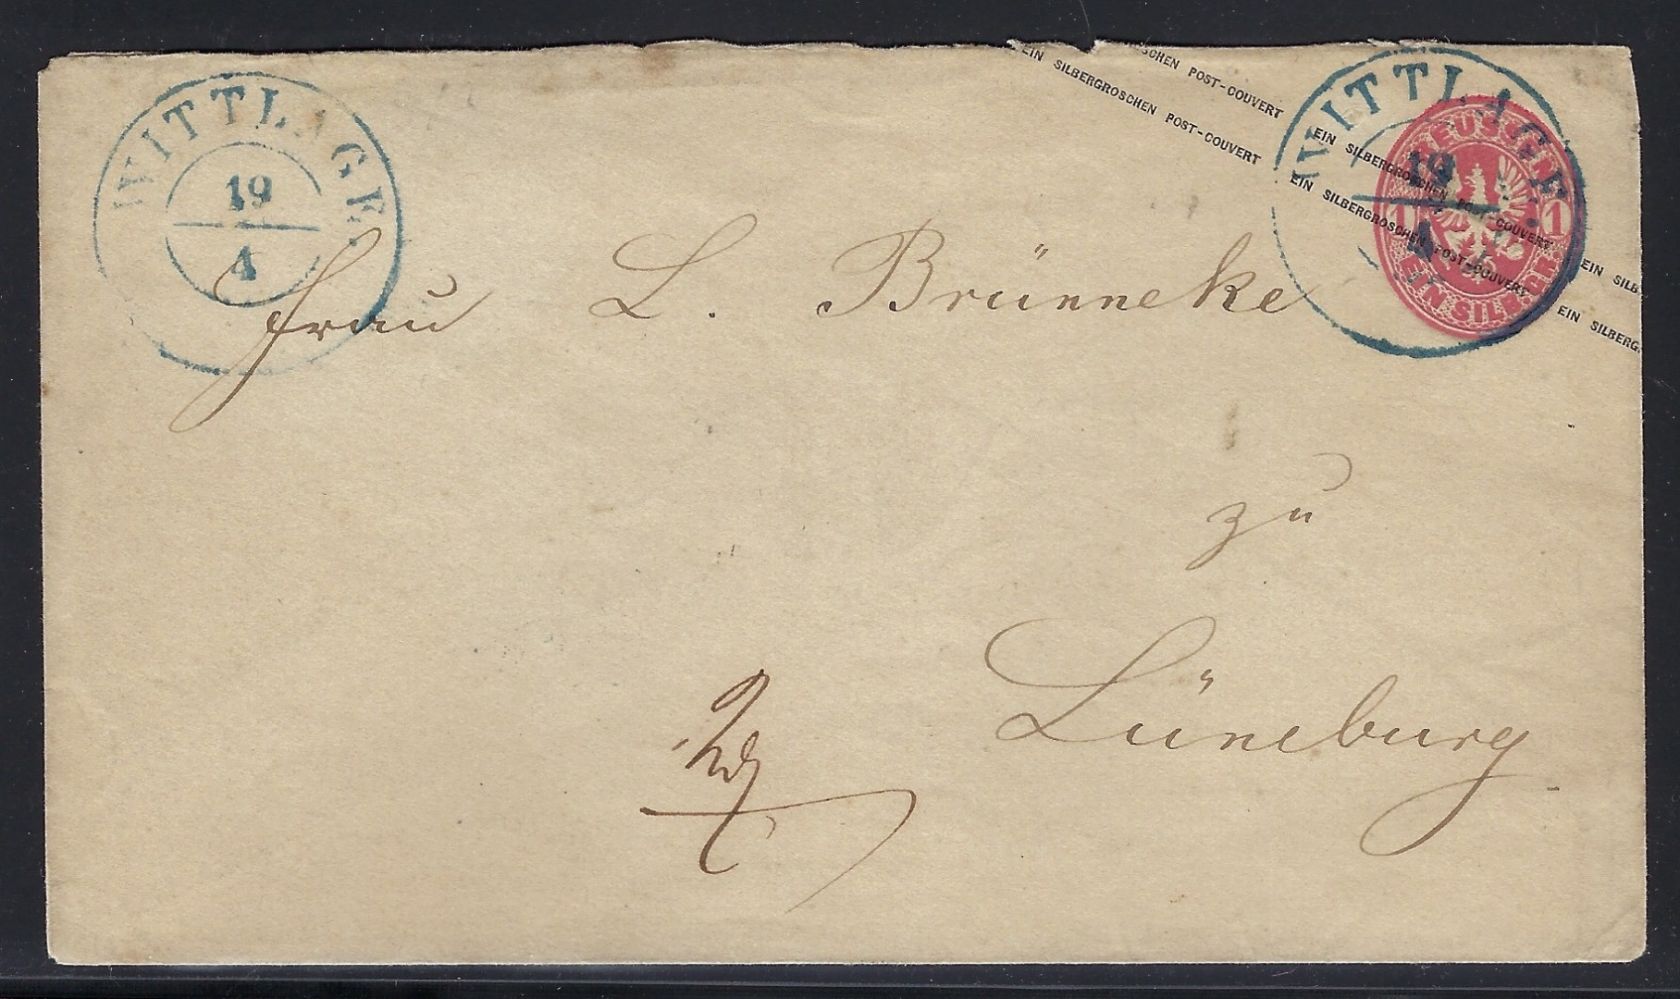 WITTLAGE.
19
4
EIN SILBERGROSCHEN POST-COUVERT
SCHEN POST-COUVERT
EIN SILBERGROSCHEN POST-COUVERT
EIN SILBERGROSCHEN POST-COUVERT
EIN SILB
EIN SILBERG
WITTLAGE.
19
4
PREUSSEN
1 1
EIN SILB.GR.
Frau L. Brünneke
zu
Lüneburg